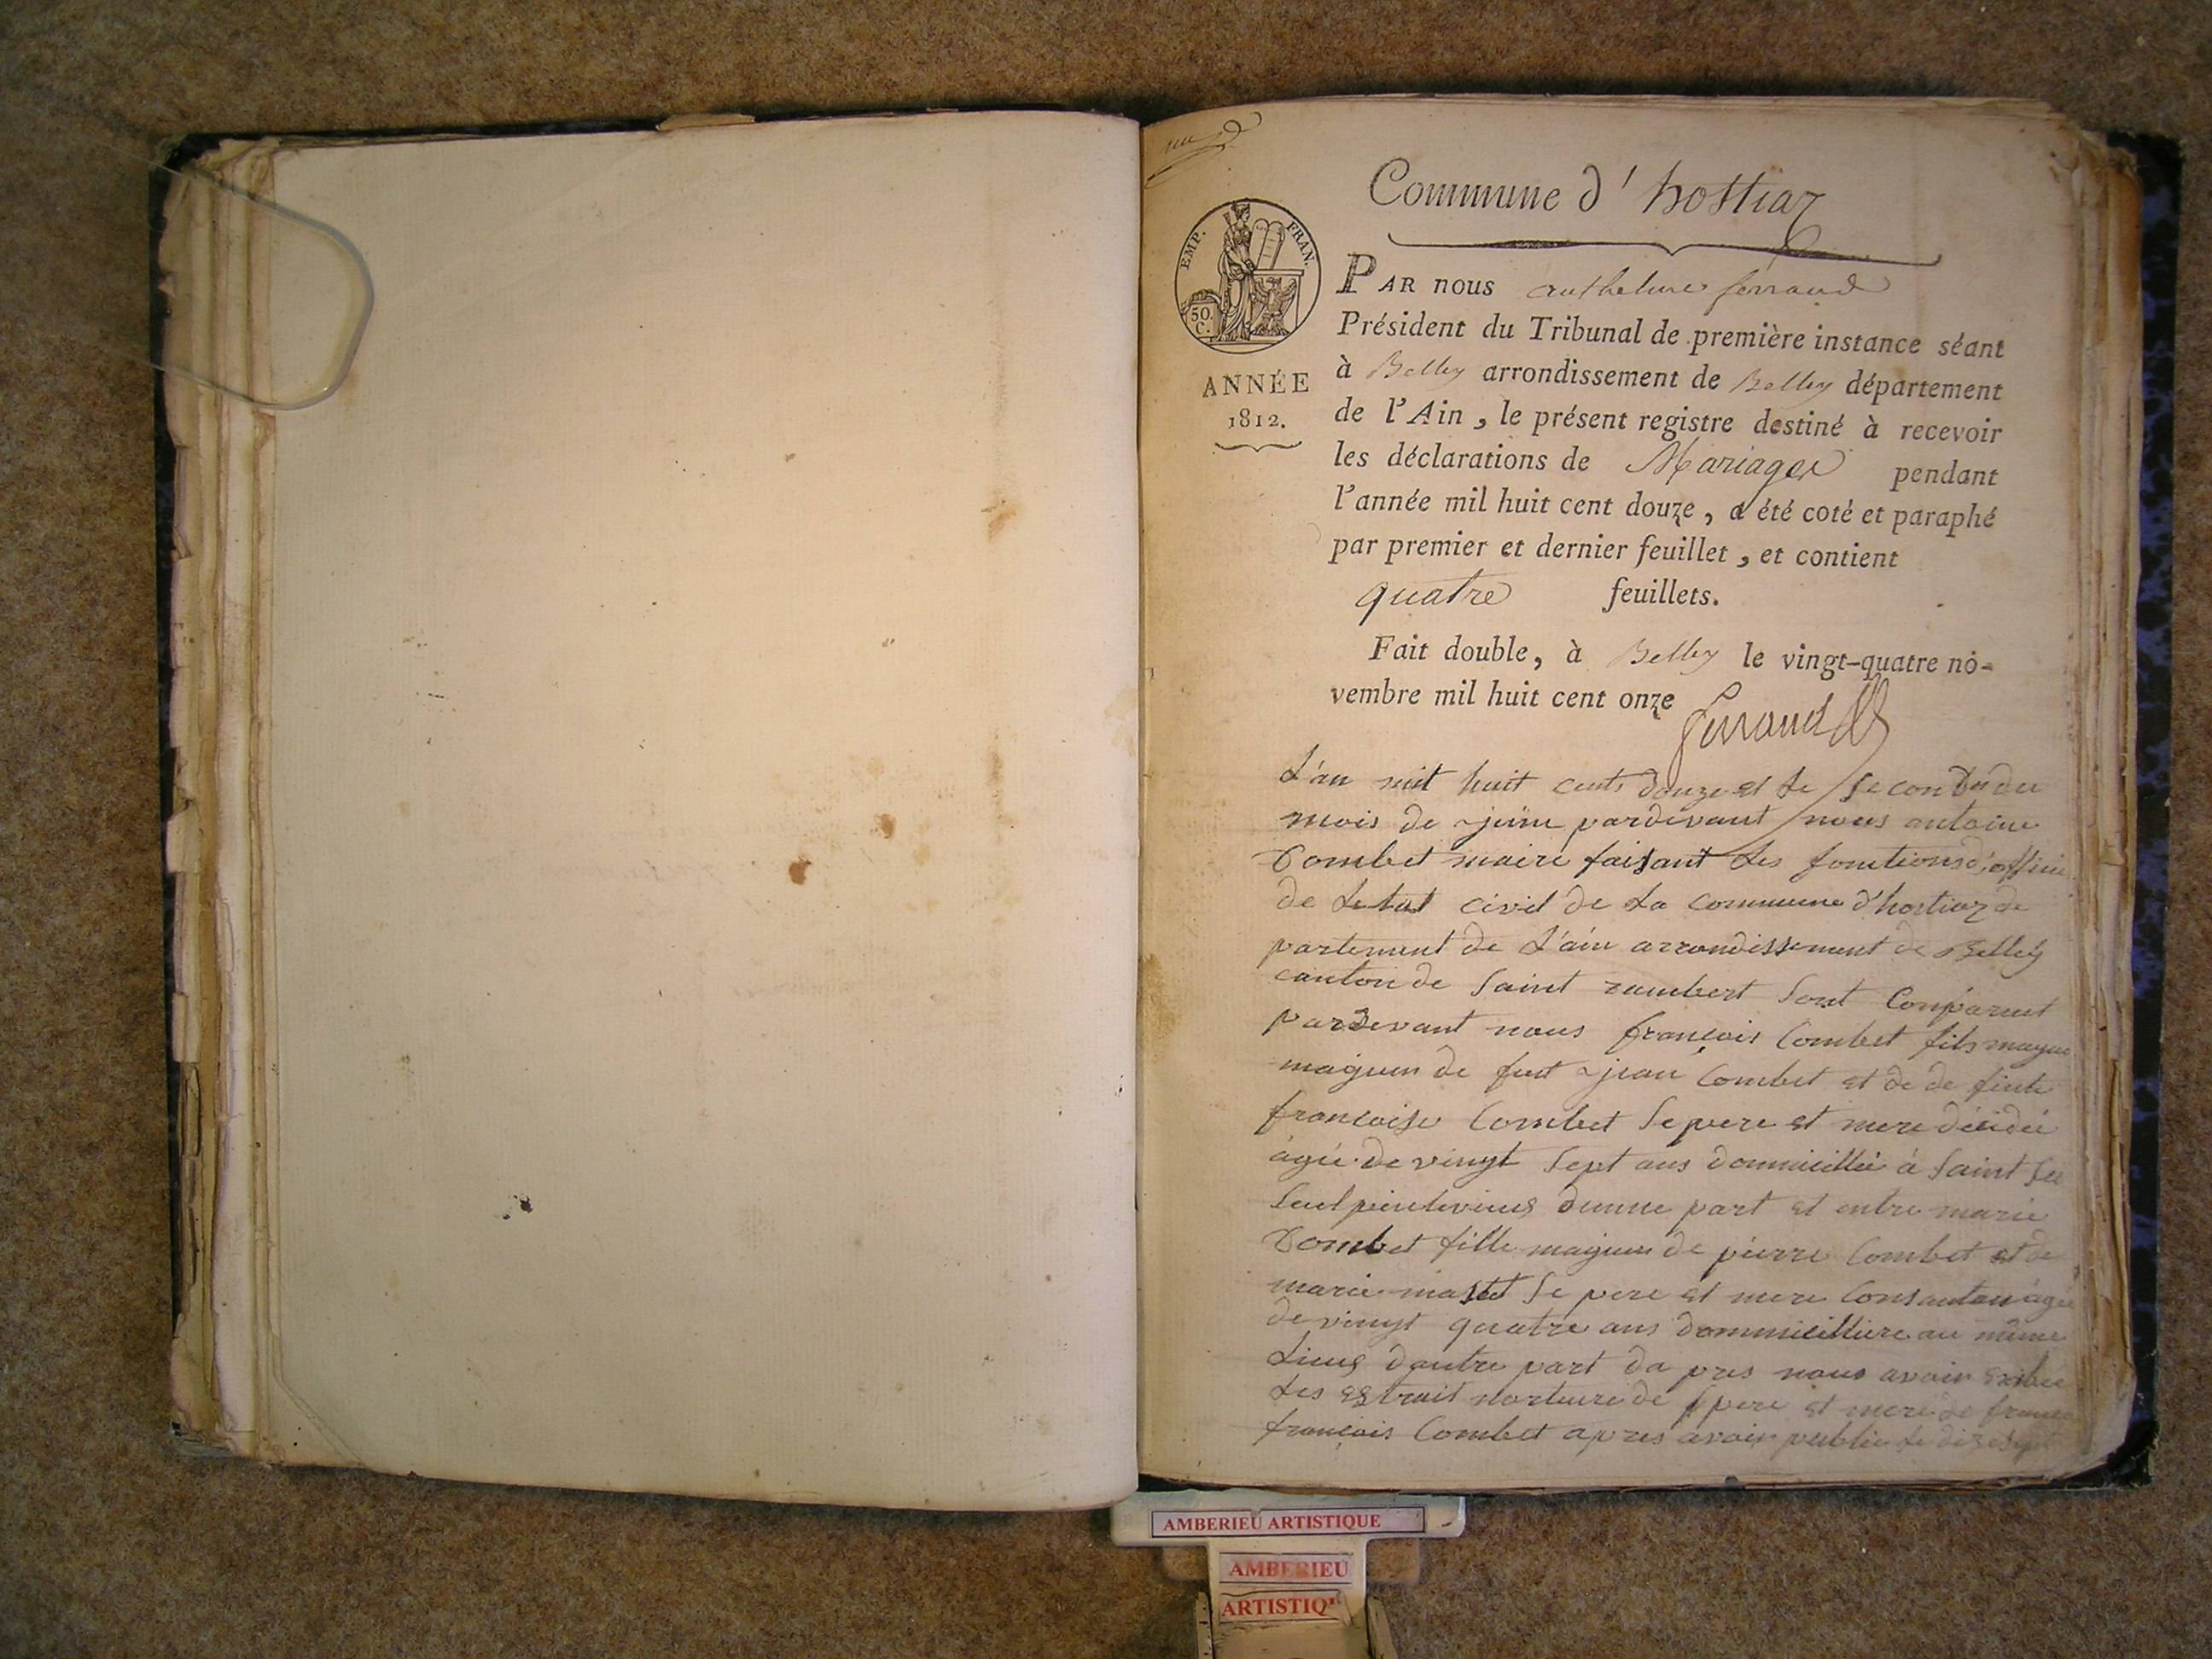 Commune d'hostiaz
EMP. FRAN.
50.
C.
ANNÉE
1812.
PAR nous anthelme ferrand
Président du Tribunal de première instance séant
à Belley arrondissement de Belley département
de l'Ain, le présent registre destiné à recevoir
les déclarations de Mariages pendant
l'année mil huit cent douze, a été coté et paraphé
par premier et dernier feuillet, et contient
quatre feuillets.
Fait double, à Belley le vingt-quatre no-
vembre mil huit cent onze
ferrand
L'an mil huit cents douze et le second du
mois de juin pardevant nous antoine
Combet maire faisant les fonctions d'officie
de Letat civil de La commune d'hostiaz de
partement de L'ain arrondissement de Belley
canton de Saint rambert Sont Comparut
pardevant nous françois Combet fils
majeur de feut jean Combet et de de feute
francoise Combet Se pere et mere décidée
âgée de vingt Sept ans dommicillié à Saint
dunne part et entre marie
Combet fille majeur de pierre Combet et de
marie Se pere et mere Consantan âgée
de vingt quatre ans dommicilliere au même
Lieus dautre part da pres nous avoir exibee
Les extrait mortuere de Spere et mere de
françois Combet apres avoir publie le
AMBERIEU ARTISTIQUE
AMBERIEU
ARTISTIQ